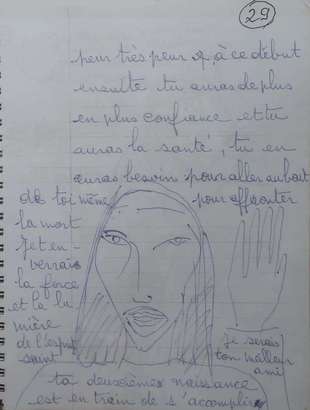 29
peur très peur à ce début
ensuite tu auras de plus
en plus confiance et tu
auras la santé, tu en
auras besoin pour aller au bout
de toi même pour affronter
la mort
Je t'en-
verrais
la force
et la lu
mière
de l'esprit
saint
Je serais
ton meilleur
ami
ta deuxième naissance
est en train de s'accomplir